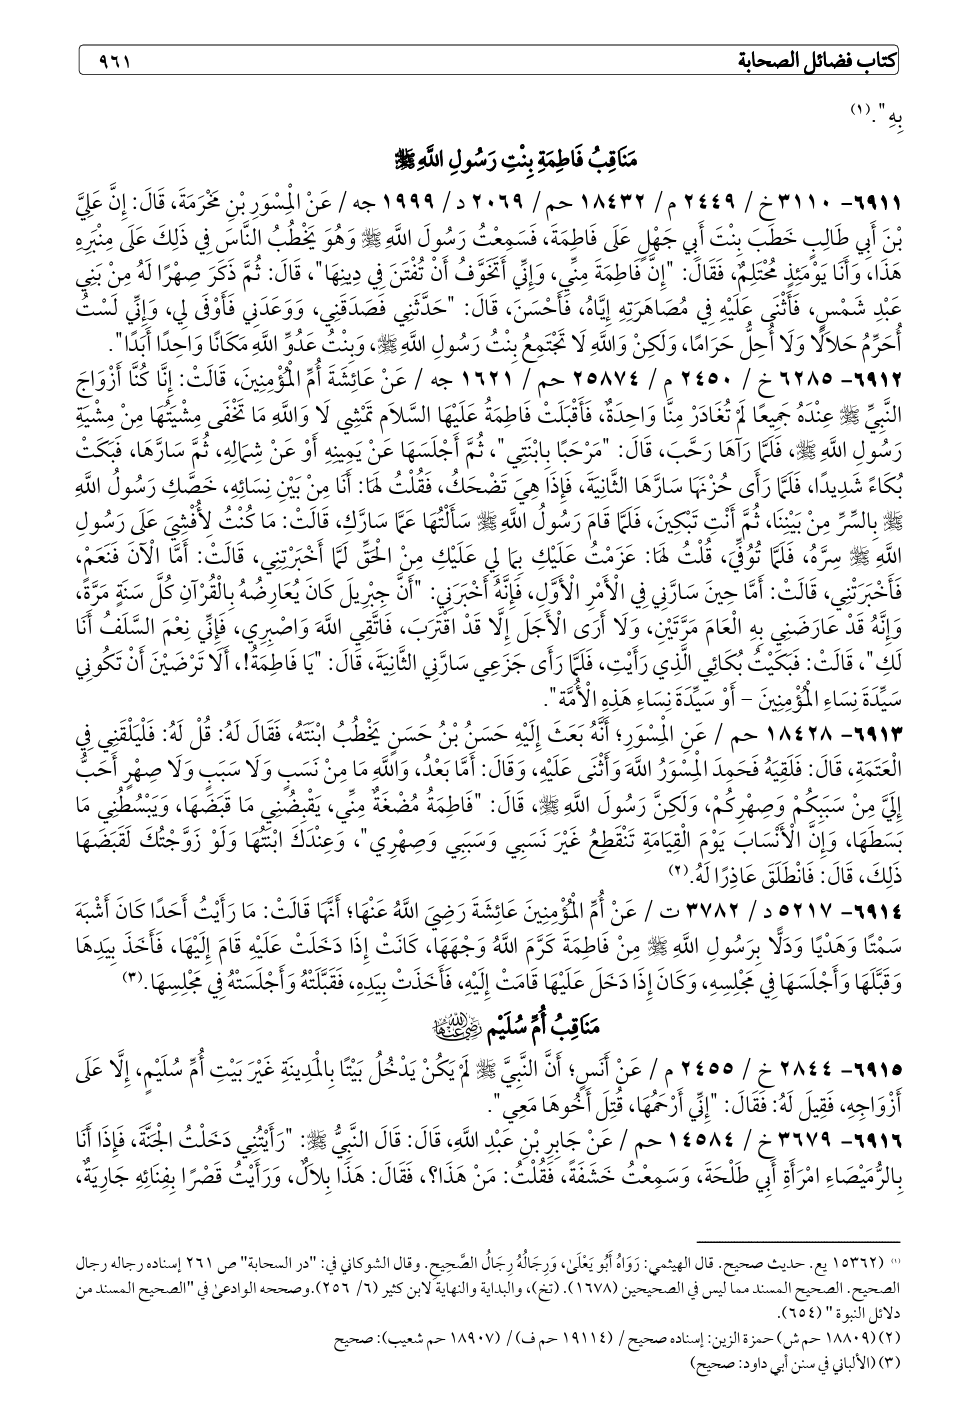 كتاب فضائل الصحابة ٩٦١
بِهِ ".(١)
مَنَاقِبُ فَاطِمَةِ بِنْتِ رَسُولِ اللَّهِ ﷺ
٦٩١١- ٣١١٠ خ / ٢٤٤٩ م/ ١٨٤٣٢ حم/ ٢٠٦٩ د/ ١٩٩٩ جه / عَنْ الْمِسْوَرِ بْنِ مَخْرَمَةَ، قَالَ: إِنَّ عَلِيَّ
بْنَ أَبِي طَالِبٍ خَطَبَ بِنْتَ أَبِي جَهْلٍ عَلَى فَاطِمَةَ، فَسَمِعْتُ رَسُولَ اللَّهِ ﷺ وَهُوَ يَخْطُبُ النَّاسَ فِي ذَلِكَ عَلَى مِنْبَرِهِ
هَذَا، وَأَنَا يَوْمَئِذٍ مُحْتَلِمٌ، فَقَالَ: "إِنَّ فَاطِمَةَ مِنِّي، وَإِنِّي أَتَخَوَّفُ أَنْ تُفْتَنَ فِي دِينِهَا"، قَالَ: ثُمَّ ذَكَرَ صِهْرًا لَهُ مِنْ بَنِي
عَبْدِ شَمْسٍ، فَأَثْنَى عَلَيْهِ فِي مُصَاهَرَتِهِ إِيَّاهُ، فَأَحْسَنَ، قَالَ: "حَدَّثَنِي فَصَدَقَنِي، وَوَعَدَنِي فَأَوْفَى لِي، وَإِنِّي لَسْتُ
أُحَرِّمُ حَلَالًا وَلَا أُحِلُّ حَرَامًا، وَلَكِنْ وَاللَّهِ لَا تَجْتَمِعُ بِنْتُ رَسُولِ اللَّهِ ﷺ، وَبِنْتُ عَدُوِّ اللَّهِ مَكَانًا وَاحِدًا أَبَدًا".
٦٩١٢- ٦٢٨٥ خ / ٢٤٥٠ م/ ٢٥٨٧٤ حم / ١٦٢١ جه / عَنْ عَائِشَةَ أُمِّ الْمُؤْمِنِينَ، قَالَتْ: إِنَّا كُنَّا أَزْوَاجَ
النَّبِيِّ ﷺ عِنْدَهُ جَمِيعًا لَمْ تُغَادَرْ مِنَّا وَاحِدَةٌ، فَأَقْبَلَتْ فَاطِمَةُ عَلَيْهَا السَّلَام تَمْشِي لَا وَاللَّهِ مَا تَخْفَى مِشْيَتُهَا مِنْ مِشْيَةِ
رَسُولِ اللَّهِ ﷺ، فَلَمَّا رَآهَا رَحَّبَ، قَالَ: "مَرْحَبًا بِابْنَتِي"، ثُمَّ أَجْلَسَهَا عَنْ يَمِينِهِ أَوْ عَنْ شِمَالِهِ، ثُمَّ سَارَّهَا، فَبَكَتْ
بُكَاءً شَدِيدًا، فَلَمَّا رَأَى حُزْنَهَا سَارَّهَا الثَّانِيَةَ، فَإِذَا هِيَ تَضْحَكُ، فَقُلْتُ لَهَا: أَنَا مِنْ بَيْنِ نِسَائِهِ، خَصَّكِ رَسُولُ اللَّهِ
ﷺ بِالسِّرِّ مِنْ بَيْنِنَا، ثُمَّ أَنْتِ تَبْكِينَ، فَلَمَّا قَامَ رَسُولُ اللَّهِ ﷺ سَأَلْتُهَا عَمَّا سَارَّكِ، قَالَتْ: مَا كُنْتُ لِأُفْشِيَ عَلَى رَسُولِ
اللَّهِ ﷺ سِرَّهُ، فَلَمَّا تُوُفِّيَ، قُلْتُ لَهَا: عَزَمْتُ عَلَيْكِ بِمَا لِي عَلَيْكِ مِنْ الْحَقِّ لَمَّا أَخْبَرْتِنِي، قَالَتْ: أَمَّا الْآنَ فَنَعَمْ،
فَأَخْبَرَتْنِي، قَالَتْ: أَمَّا حِينَ سَارَّنِي فِي الْأَمْرِ الْأَوَّلِ، فَإِنَّهُ أَخْبَرَنِي: "أَنَّ جِبْرِيلَ كَانَ يُعَارِضُهُ بِالْقُرْآنِ كُلَّ سَنَةٍ مَرَّةً،
وَإِنَّهُ قَدْ عَارَضَنِي بِهِ الْعَامَ مَرَّتَيْنِ، وَلَا أَرَى الْأَجَلَ إِلَّا قَدْ اقْتَرَبَ، فَاتَّقِي اللَّهَ وَاصْبِرِي، فَإِنِّي نِعْمَ السَّلَفُ أَنَا
لَكِ"، قَالَتْ: فَبَكَيْتُ بُكَائِي الَّذِي رَأَيْتِ، فَلَمَّا رَأَى جَزَعِي سَارَّنِي الثَّانِيَةَ، قَالَ: "يَا فَاطِمَةُ!، أَلَا تَرْضَيْنَ أَنْ تَكُونِي
سَيِّدَةَ نِسَاءِ الْمُؤْمِنِينَ – أَوْ سَيِّدَةَ نِسَاءِ هَذِهِ الْأُمَّة".
٦٩١٣- ١٨٤٢٨ حم / عَنِ الْمِسْوَرِ؛ أَنَّهُ بَعَثَ إِلَيْهِ حَسَنُ بْنُ حَسَنٍ يَخْطُبُ ابْنَتَهُ، فَقَالَ لَهُ: قُلْ لَهُ: فَلْيَلْقَنِي فِي
الْعَتَمَةِ، قَالَ: فَلَقِيَهُ فَحَمِدَ الْمِسْوَرُ اللَّهَ وَأَثْنَى عَلَيْهِ، وَقَالَ: أَمَّا بَعْدُ، وَاللَّهِ مَا مِنْ نَسَبٍ وَلَا سَبَبٍ وَلَا صِهْرٍ أَحَبُّ
إِلَيَّ مِنْ سَبَبِكُمْ وَصِهْرِكُمْ، وَلَكِنَّ رَسُولَ اللَّهِ ﷺ، قَالَ: "فَاطِمَةُ مُضْغَةٌ مِنِّي، يَقْبِضُنِي مَا قَبَضَهَا، وَيَبْسُطُنِي مَا
بَسَطَهَا، وَإِنَّ الْأَنْسَابَ يَوْمَ الْقِيَامَةِ تَنْقَطِعُ غَيْرَ نَسَبِي وَسَبَبِي وَصِهْرِي"، وَعِنْدَكَ ابْنَتُهَا وَلَوْ زَوَّجْتُكَ لَقَبَضَهَا
ذَلِكَ، قَالَ: فَانْطَلَقَ عَاذِرًا لَهُ.(٢)
٦٩١٤- ٥٢١٧ د/ ٣٧٨٢ ت / عَنْ أُمِّ الْمُؤْمِنِينَ عَائِشَةَ رَضِيَ اللَّهُ عَنْهَا؛ أَنَّهَا قَالَتْ: مَا رَأَيْتُ أَحَدًا كَانَ أَشْبَهَ
سَمْتًا وَهَدْيًا وَدَلًّا بِرَسُولِ اللَّهِ ﷺ مِنْ فَاطِمَةَ كَرَّمَ اللَّهُ وَجْهَهَا، كَانَتْ إِذَا دَخَلَتْ عَلَيْهِ قَامَ إِلَيْهَا، فَأَخَذَ بِيَدِهَا
وَقَبَّلَهَا وَأَجْلَسَهَا فِي مَجْلِسِهِ، وَكَانَ إِذَا دَخَلَ عَلَيْهَا قَامَتْ إِلَيْهِ، فَأَخَذَتْ بِيَدِهِ، فَقَبَّلَتْهُ وَأَجْلَسَتْهُ فِي مَجْلِسِهَا.(٣)
مَنَاقِبُ أُمِّ سُلَيْمٍ رضي الله عنها
٦٩١٥- ٢٨٤٤ خ / ٢٤٥٥ م / عَنْ أَنَسٍ؛ أَنَّ النَّبِيَّ ﷺ لَمْ يَكُنْ يَدْخُلُ بَيْتًا بِالْمَدِينَةِ غَيْرَ بَيْتِ أُمِّ سُلَيْمٍ، إِلَّا عَلَى
أَزْوَاجِهِ، فَقِيلَ لَهُ: فَقَالَ: "إِنِّي أَرْحَمُهَا، قُتِلَ أَخُوهَا مَعِي".
٦٩١٦- ٣٦٧٩ خ/ ١٤٥٨٤ حم / عَنْ جَابِرِ بْنِ عَبْدِ اللَّهِ، قَالَ: قَالَ النَّبِيُّ ﷺ: "رَأَيْتُنِي دَخَلْتُ الْجَنَّةَ، فَإِذَا أَنَا
بِالرُّمَيْصَاءِ امْرَأَةِ أَبِي طَلْحَةَ، وَسَمِعْتُ خَشَفَةً، فَقُلْتُ: مَنْ هَذَا؟، فَقَالَ: هَذَا بِلَالٌ، وَرَأَيْتُ قَصْرًا بِفِنَائِهِ جَارِيَةٌ،
(١) (١٥٣٦٢ يع. حديث صحيح. قال الهيثمي: رَوَاهُ أَبُو يَعْلَى، وَرِجَالُهُ رِجَالُ الصَّحِيحِ. وقال الشوكاني في: "در السحابة" ص ٢٦١ إسناده رجاله رجال
الصحيح. الصحيح المسند مما ليس في الصحيحين (١٦٧٨). (تخ)، والبداية والنهاية لابن كثير (٦/ ٢٥٦).وصححه الوادعىٰ في "الصحيح المسند من
دلائل النبوة " (٦٥٤).
(٢) (١٨٨٠٩ حم ش) حمزة الزين: إسناده صحيح / (١٩١١٤ حم ف)/ (١٨٩٠٧ حم شعيب): صحيح
(٣) (الألباني في سنن أبي داود: صحيح)